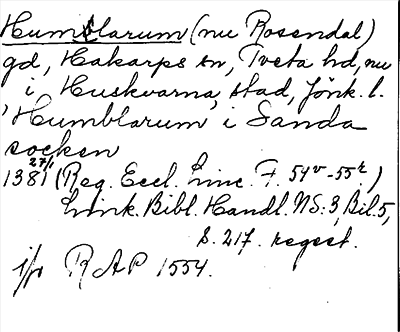 Humblarum (nu Rosendal)
gd, Hakarps sn, Tveta hd, nu
i Huskvarna stad, Jönk. l.
'Humblarum' i Sanda
socken
1381 27/1 (Reg. Eccl. Linc. F. 54v-55r)
Link. Bibl. Handl. NS:3, Bil. 5,
S. 217. regest.
jfr RAP 1554.